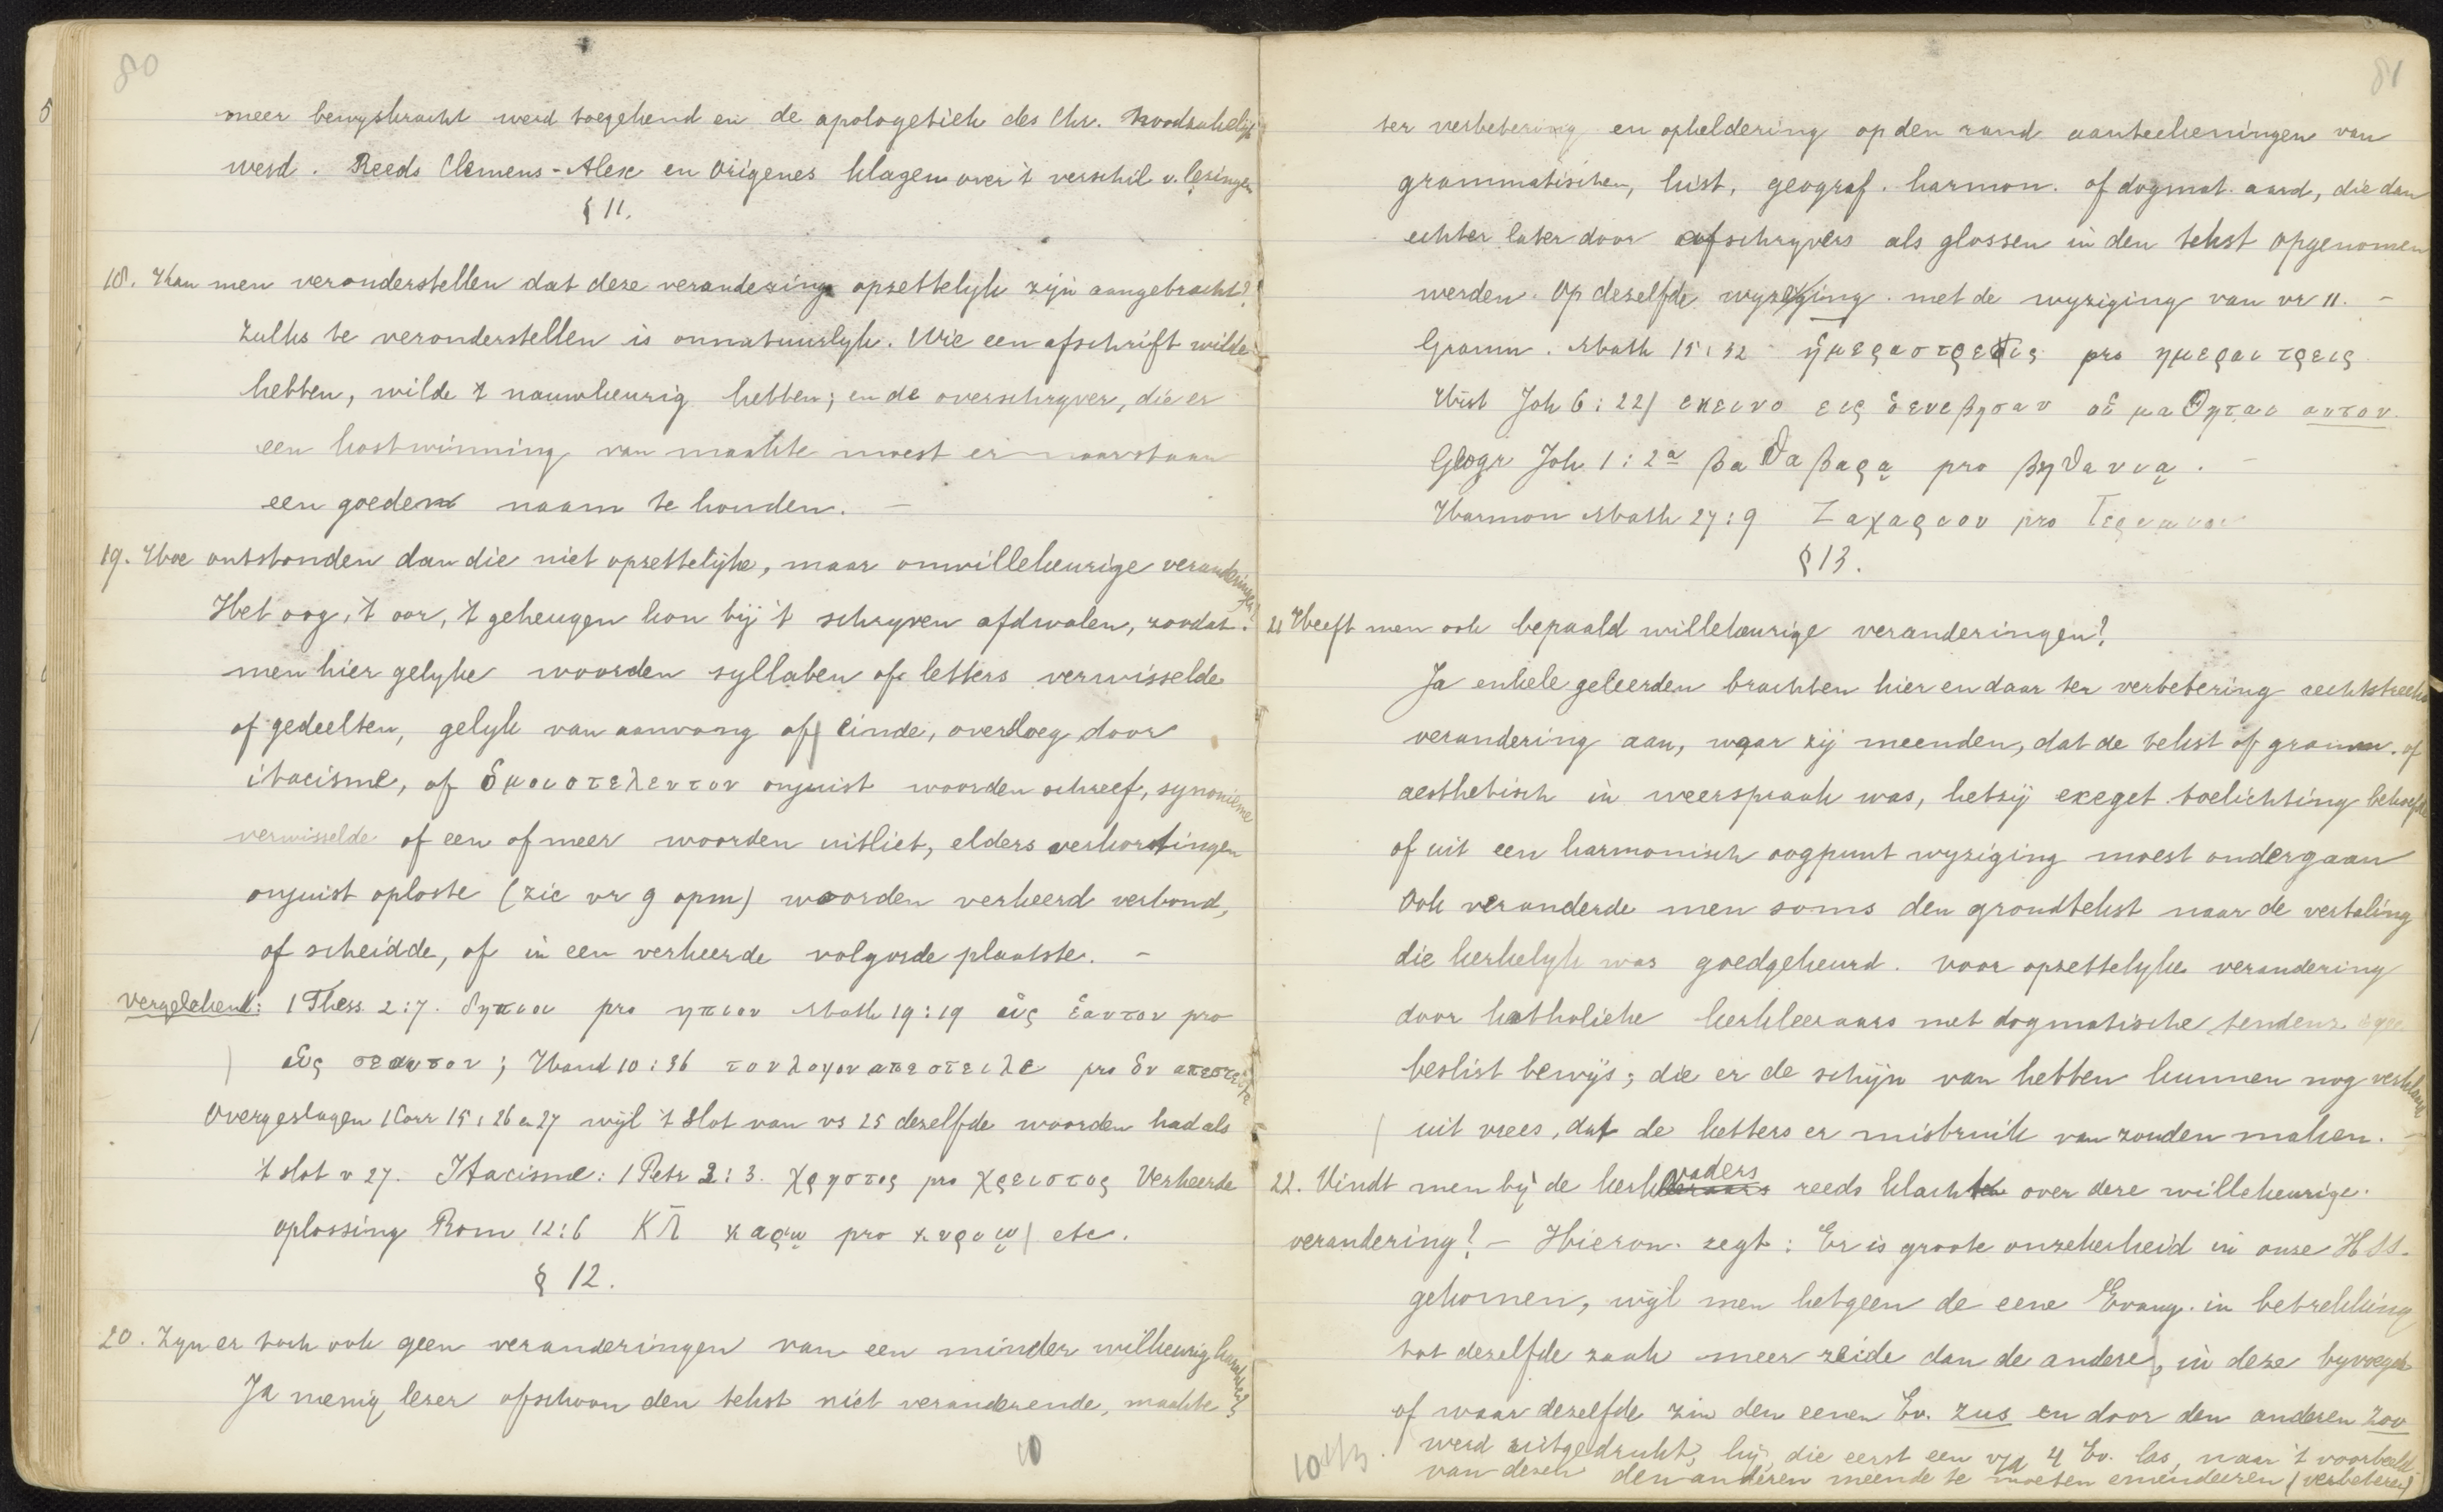 80
meer bewyskracht werd toegekend en de apologetiek des Chr. Noodzakelijk
werd. Reeds Clemens-Alex en Origenes klagen over 't verschil v. lezingen
§ 11.
18. Kan men veronderstellen dat deze veranderingn opzettelyk zijn aangebracht?
Zulks te veronderstellen is onnatuurlyk. Wie een afschrift wilde
hebben, wilde 't nauwkeurig hebben; en de overschryver, die er
een kostwinning van maakte moest er naarstaan
een goeden naam te houden. –
19. Hoe ontstonden dan die niet opzettelijke, maar onwillekeurige veranderingen?
Het oog, 't oor, 't geheugen kon bij 't schryven afdwalen, zoodat
men hier gelyke woorden syllaben of letters verwisselde
of gedeelten, gelyk van aanvang of einde, oversloeg door
itacisme, of ὁμοιοτελευτον onjuist woorden schreef, synonieme
verwisselde of een of meer woorden uitliet, elders verkortingen
onjuist oploste (zie vr 9 opm) woorden verkeerd verbond,
of scheidde, of in een verkeerde volgorde plaatste. –
vergelekend: 1 Thess. 2:7. νηπιοι pro ηπιοι Math 19:19 ὡς ἑαυτον pro
ὡς σεαυτον; Hand 10:36 τον λογον απεστειλε pro ὃν απεστειλε
Overgeslagen 1 Corr 15:26 en 27 wijl 't slot van vs 25 dezelfde woorden had als
't slot v 27. Itacisme: 1 Petr 2:3. χρηστος pro χρειστος Verkeerde
oplossing Rom 12:6 ΚΛ̄ καρῳ pro κυριῳ etc.
§ 12.
20. Zyn er toch ook geen veranderingen van een minder wilkeurig karakter?
Ja menig lezer ofschoon den tekst niet veranderende, maakte
10
81
ter verbetering en opheldering op den rand aanteekeningen van
grammatischen, hist, geograf. harmon. of dogmat. aard, die dan
echter later door afschryvers als glossen in den tekst opgenomen
werden. Op dezelfde wyze met de wyziging van vr 11. –
Gramm. Math 15:32 ἡμερας τρεις pro ημεραι τρεις
Hist Joh 6:22 εκεινο εις ὃ ενεβησαν οἱ μαθηται αυτου.
Geogr Joh 1:2a βαθαβαρᾳ pro βηθανιᾳ. –
Harmon Math 27:9 Ζαχαριου pro Ιερεμιου
§ 13.
21 Heeft men ook bepaald willekeurige veranderingen?
Ja enkele geleerden brachten hier en daar ter verbetering rechtstreeks
verandering aan, waar zij meenden, dat de tekst of gramm. of
aesthetisch in weerspraak was, hetzij exeget. toelichting behoefde
of uit een harmonisch oogpunt wyziging moest ondergaan
Ook veranderde men soms den grondtekst naar de vertaling
die kerkelyk was goedgekeurd. Voor opzettelyke verandering
door katholieke kerkleeraars met dogmatische tendenz is geen
beslist bewijs; die er de schijn van hebben kunnen nog verklaard
uit vrees, dat de ketters er misbruik van zouden maken. –
22. Vindt men bij de kerkvaders reeds klachten over deze willekeurige
verandering? – Hieron. zegt: Er is groote onzekerheid in onze HSS.
gekomen, wijl men hetgeen de eene Evang. in betrekking
tot dezelfde zaak meer zeide dan de andere, in deze byvoegde
of waar dezelfde zin den eenen Ev. zus en door den anderen zoo
werd uitgedrukt, hij, die eerst een v/d 4 Ev. las, naar 't voorbeeld
van dezen den anderen meende te moeten emendeeren (verbeteren)